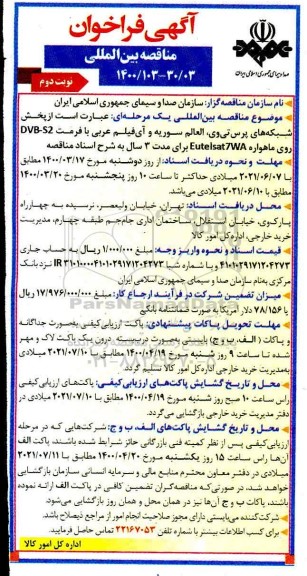 آگهی فراخوان
مناقصه بین المللی
۱۴۰۰/۱۰۳-۳۰/۰۳
نوبت دوم
نام سازمان مناقصه گزار: سازمان صدا و سیمای جمهوری اسلامی ایران
موضوع مناقصه بین‌المللی یک مرحله‌ای: عبارت است از پخش
شبکه‌های پرس تی‌وی، العالم سوریه و آی‌فیلم عربی با فرمت DVB-S2
روی ماهواره Eutelsat7WA برای مدت ۳ سال به شرح اسناد مناقصه
مهلت و نحوه دریافت اسناد: از روز دوشنبه مورخ ۱۴۰۰/۰۳/۱۷ مطابق
با ۲۰۲۱/۰۶/۰۷ میلادی حداکثر تا ساعت ۱۰ روز پنجشنبه مورخ ۱۴۰۰/۰۳/۲۰
مطابق با ۲۰۲۱/۰۶/۱۰ میلادی می‌باشد.
محل دریافت اسناد: تهران، خیابان ولیعصر، نرسیده به چهارراه
پارک‌وی، خیابان استقلال، ساختمان اداری جام‌جم طبقه چهارم، مدیریت
خرید خارجی اداره کل امور کالا
قیمت اسناد و نحوه واریز وجه: مبلغ ۱/۰۰۰/۰۰۰ ریال به حساب جاری
نزد بانک
مرکزی به‌نام سازمان صدا و سیمای جمهوری اسلامی ایران
میزان تضمین شرکت در فرآیند ارجاع کار: مبلغ ۱۷/۹۷۶/۰۰۰/۰۰۰ ریال
یا ۷۸/۱۵۶ دلار آمریکا به صورت ضمانتنامه بانکی
مهلت تحویل پاکات پیشنهادی: پاکت ارزیابی کیفی به‌صورت جداگانه
و پاکات (الف، ب و ج) بایستی به‌صورت دربسته، درون یک پاکت لاک و مهر
شده تا ساعت ۹ روز شنبه مورخ ۱۴۰۰/۰۴/۱۹ مطابق با ۲۰۲۱/۰۷/۱۰ میلادی
به مدیریت خرید خارجی اداره کل امور کالا تسلیم گردد.
محل و تاریخ گشایش پاکت‌های ارزیابی کیفی: پاکت‌های ارزیابی کیفی
راس ساعت ۱۰ صبح روز شنبه مورخ ۱۴۰۰/۰۴/۱۹ مطابق با ۲۰۲۱/۰۷/۱۰ میلادی در
دفتر مدیریت خرید خارجی بازگشایی می گردد.
محل و تاریخ گشایش پاکت‌های الف، ب و ج: شرکت‌هایی که در مرحله
ارزیابی کیفی پس از نظر کمیته فنی بازرگانی حائز شرایط شده باشند، پاکت الف
آن‌ها راس ساعت ۱۵ روز یکشنبه مورخ ۱۴۰۰/۰۴/۲۰ مطابق با ۲۰۲۱/۰۷/۱۱
میلادی در دفتر معاون محترم منابع مالی و سرمایه انسانی سازمان بازگشایی
خواهد شد، در صورتی که مناقصه‌گران تضمین کافی در پاکت الف ارائه نموده
باشند، پاکات ب و ج آن‌ها نیز در همان محل و همان روز بازگشایی می‌شود.
شرکت کننده می‌بایستی دارای مجوز صلاحیت انجام امور از مراجع ذیصلاح باشد.
برای کسب اطلاعات بیشتر با شماره تلفن ۲۲۱۶۷۰۵۳ تماس حاصل فرمایید.
اداره کل امور کالا